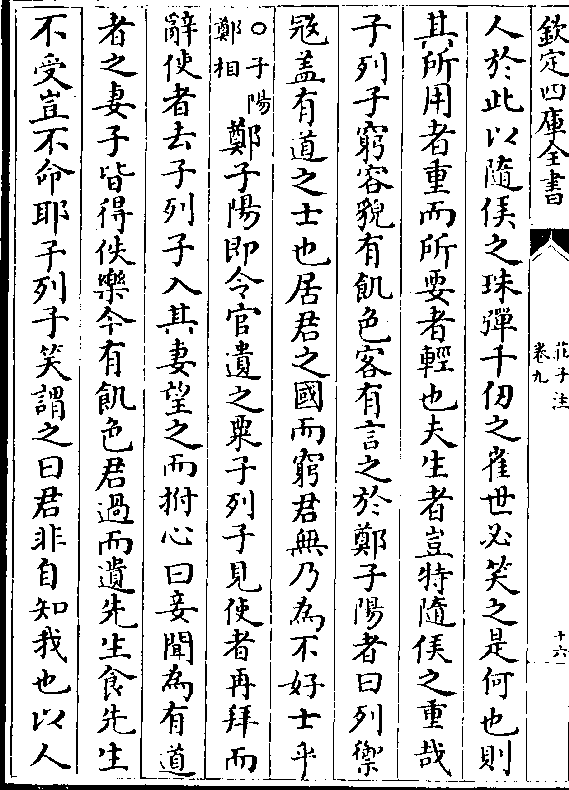 欽定四庫全書
莊子注
卷九
十六
人於此以隨侯之珠彈千仞之雀世必笑之是何也則
其所用者重而所要者輕也夫生者豈特隨侯之重哉
子列子窮容貌有飢色客有言之於鄭子陽者曰列禦
㓂盖有道之士也居君之國而窮君無乃為不好士乎
○子陽
鄭相
鄭子陽即令官遺之粟子列子見使者再拜而
辭使者去子列子入其妻望之而拊心曰妾聞為有道
者之妻子皆得佚樂今有飢色君過而遺先生食先生
不受豈不命耶子列子笑謂之曰君非自知我也以人